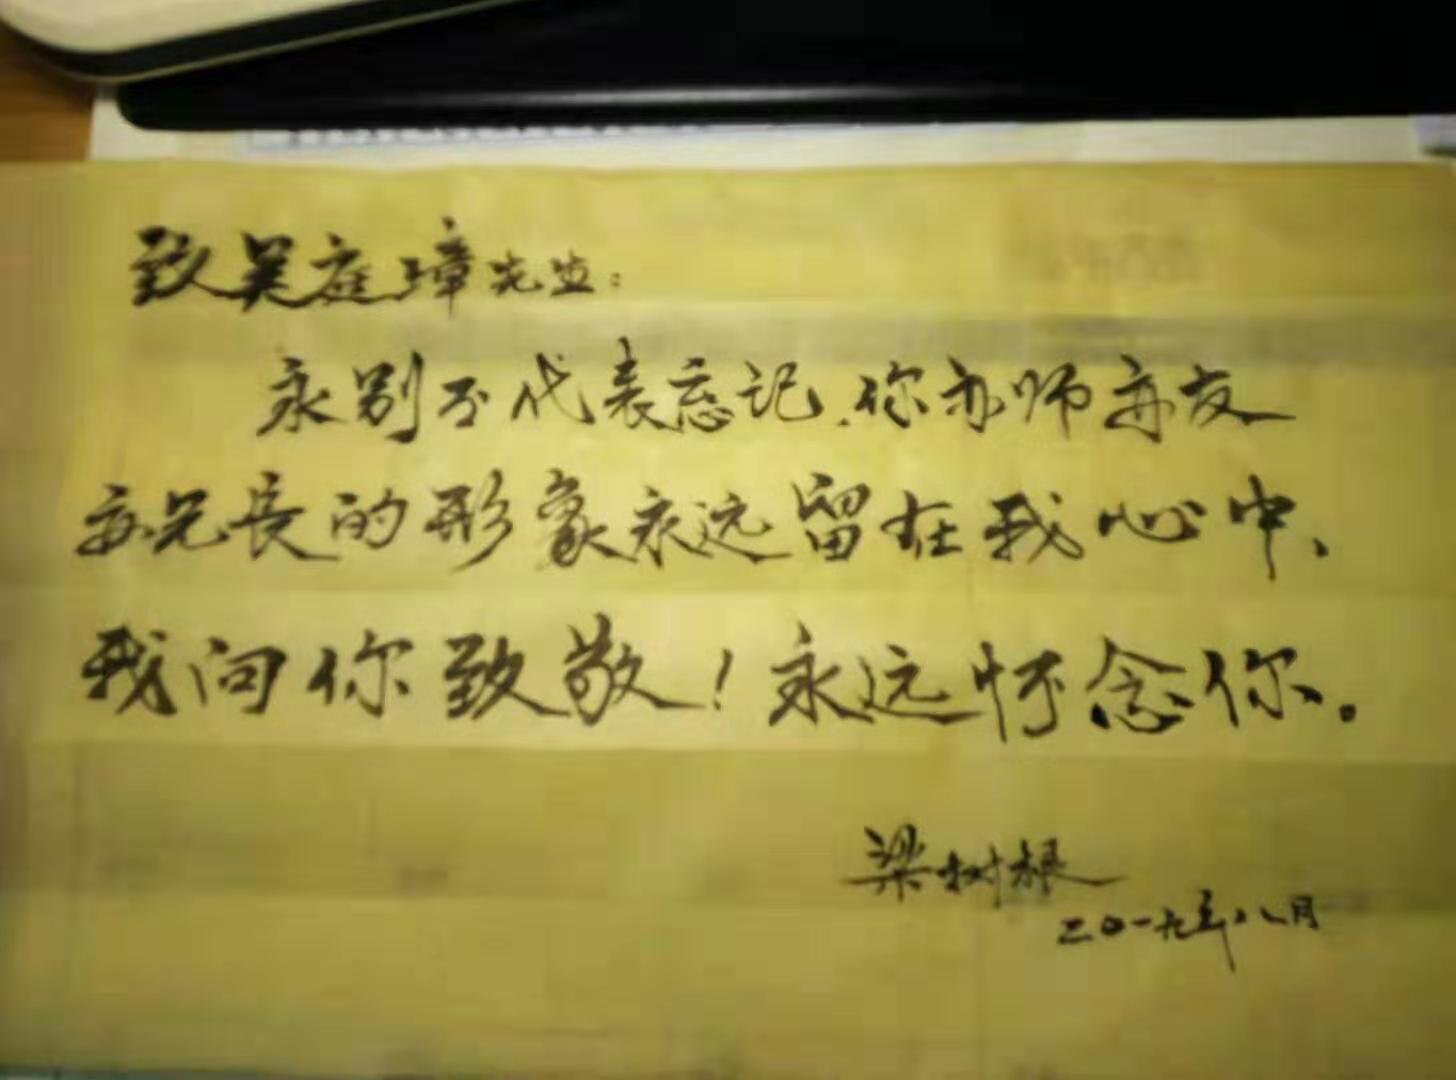 致吴庭璋先生：
永别不代表忘记，你亦师亦友
亦兄长的形象永远留在我心中、
我向你致敬！永远怀念你。
梁树根
二〇一九年八月